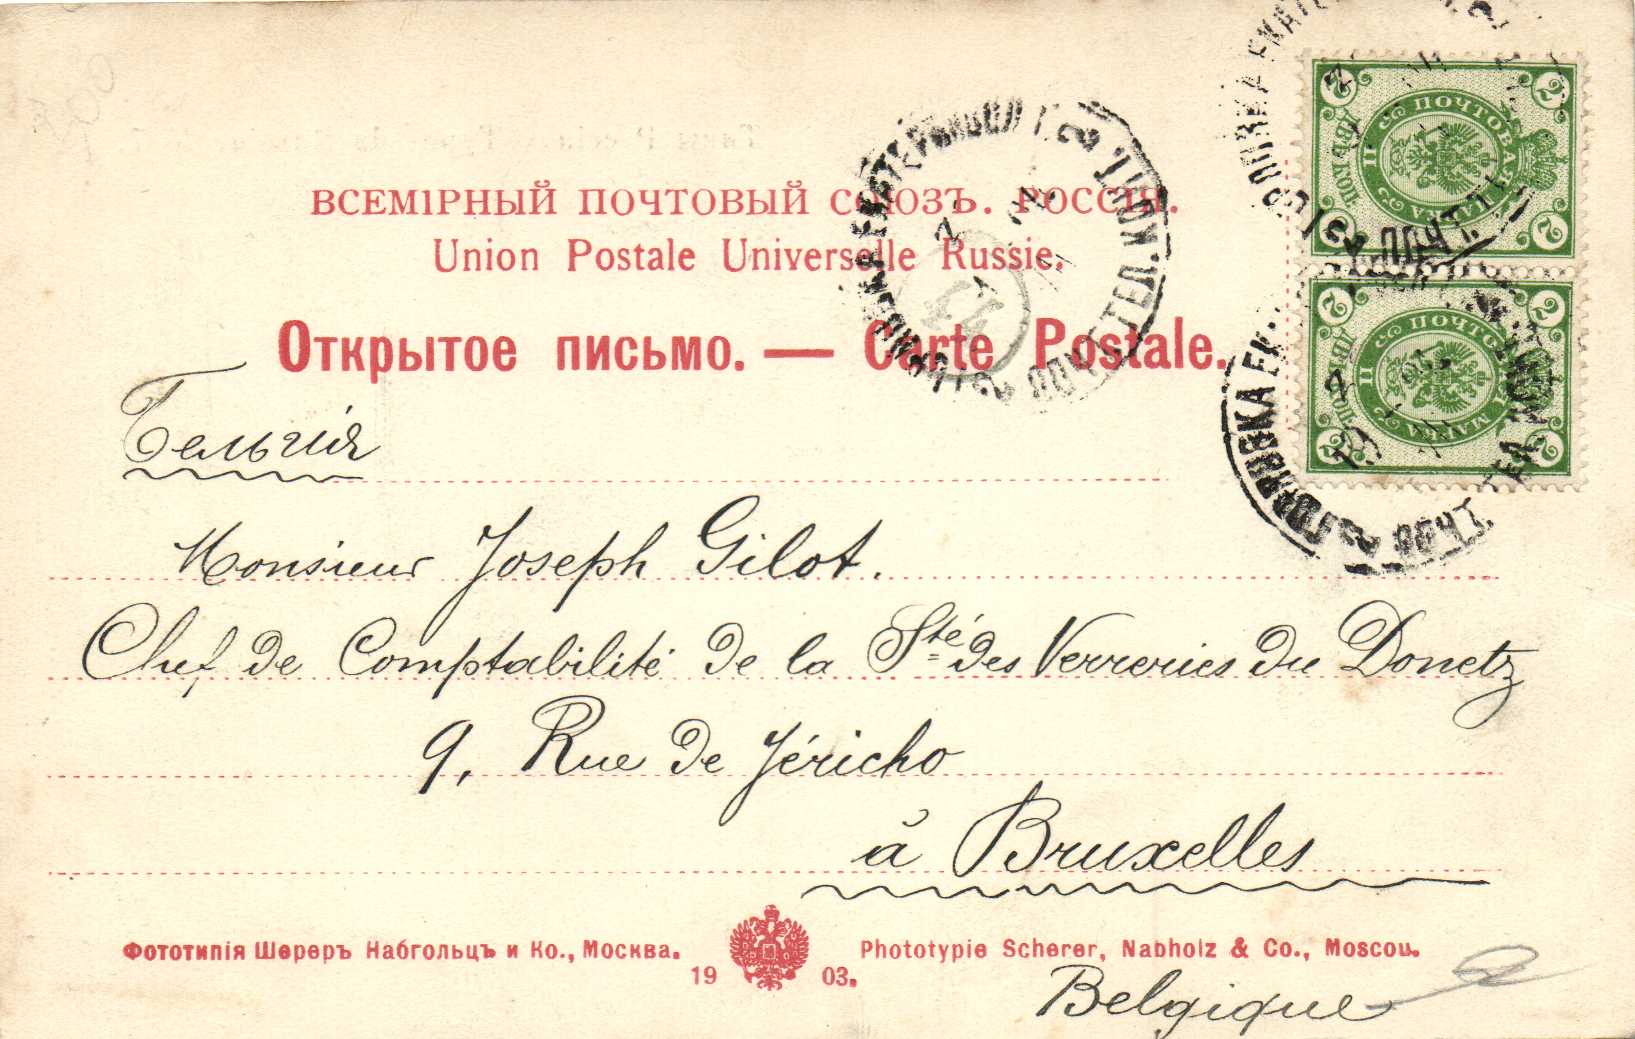 ВСЕМІРНЫЙ ПОЧТОВЫЙ СОЮЗЪ. РОССІЯ.
Union Postale Universelle Russie.
Открытое письмо. — Carte Postale.
Бельгія
Monsieur Joseph Gilot.
Chef de Comptabilité de la Sté des Verreries du Donetz
9, Rue de Jéricho
à Bruxelles
Фототипія Шереръ Набгольцъ и Ко., Москва.
1903.
Phototypie Scherer, Nabholz & Co., Moscou.
Belgique
ПОЧТОВАЯ МАРКА
2 2
2 2
ПОЧТОВАЯ МАРКА
2 2
2 2
ПОЧТ. ТЕЛ. КОНТ.